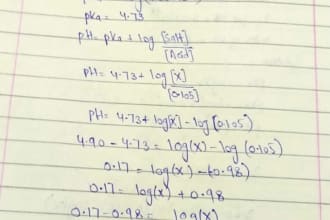 pka = 4.73
pH = pka + log [Salt]
[Acid]
pH = 4.73 + log [x]
[0.105]
pH = 4.73 + log[x] - log [0.105]
4.90 - 4.73 = log(x) - log (0.105)
0.17 = log(x) - (-0.98)
0.17 = log(x) + 0.98
0.17 - 0.98 = log(x)